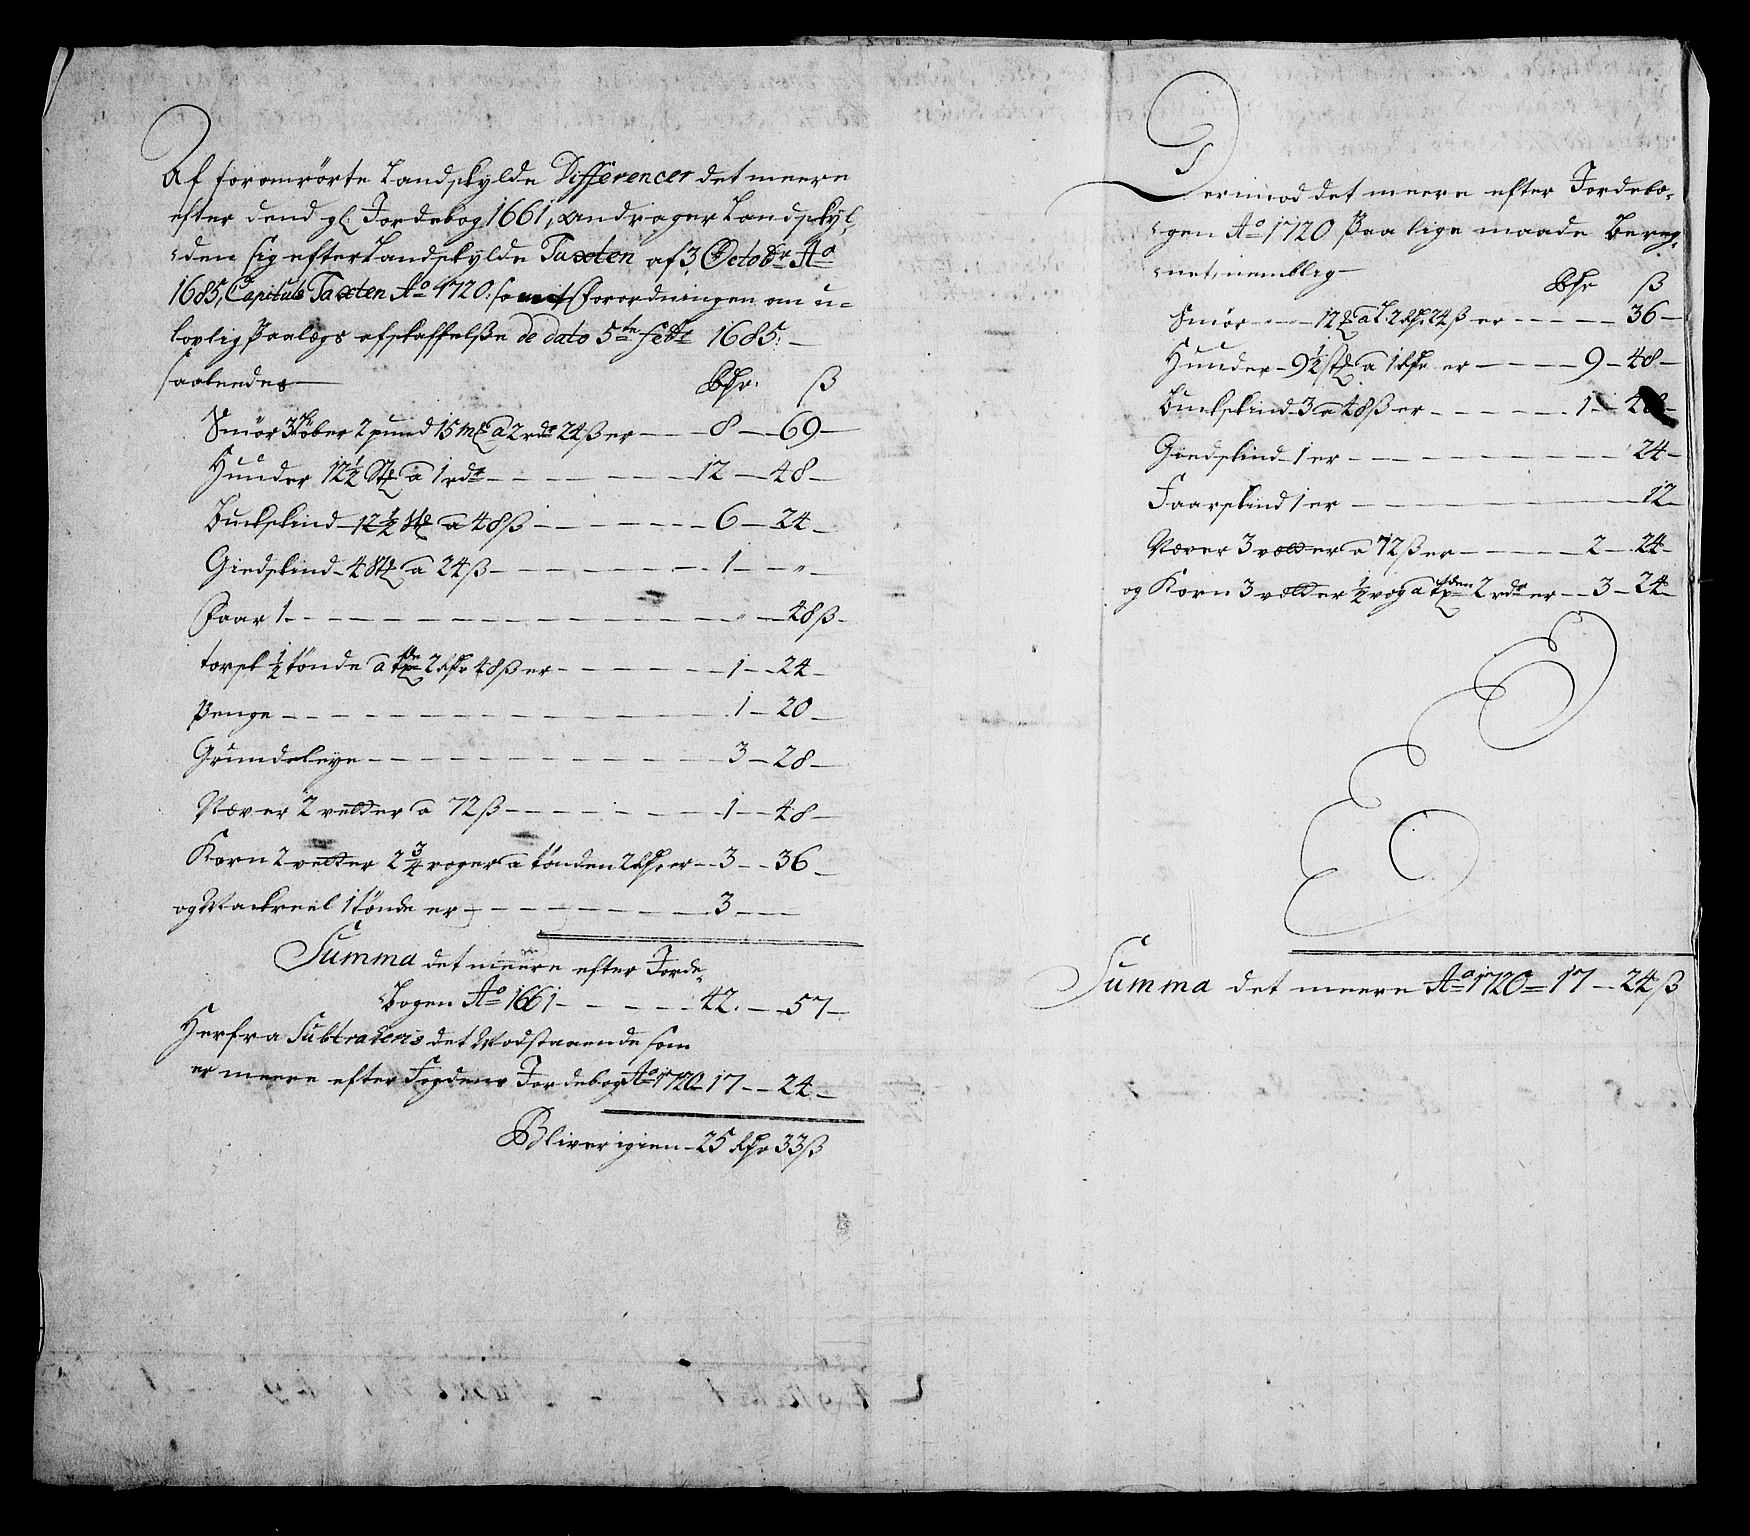 Af foromrörte Landskylde Differencer det meere
efter dend gl. Jordebog 1661, andrager Landskyl-
den sig efter Landskylde Taxten af 3 Octobr. Ao
1685, Capituls Taxten Ao 1720. samt Forordningen om u-
lovlig Paalægs afskaffelße de dato 5te Febr 1685.
saaledes Rdr. ß
Smör 3 Löber 2 pund 15 mk a 2 rdr 24 ß er 8 - 69
Huuder 12½ Stk a 1 rdr 12 - 48
Buckskind 12½ Stk a 48 ß 6 - 24
Giedskind 4 Stk a 24 ß 1 - "
Faar 1 " - 48 ß
torsk ½ tönde a tde 2 Rdr 48 ß er 1 - 24
Penge 1 - 20
Grundeleye 3 - 28
Næver 2 vetter a 72 ß 1 - 48
Korn 2 vetter 2¾ voger a tönden 2 Rdr. er 3 - 36
og Mackreel 1 tönde er 3
Summa det meere efter Jorde-
Bogen Ao 1661 42 - 57
Herfra Subtraheris det Modstaaende som
er meere efter Fogdens Jordebog Ao 1720 17 - 24
Bliver igien 25 Rdr 33 ß
Derimod det meere efter Jordebo-
gen Ao 1720 Paa lige maade Bereg-
net, nemblig
Rdr ß
Smör 12 mk a L 2 Rdr. 24 ß er 36
Huuder 9½ stk a 1 Rdr er 9 - 48
Buckskind 3 a 48 ß er 1 - 48
Giedskind 1 er 24
Faarskind 1 er 12
Næver 3 vetter a 72 ß er 2 - 24
og Korn 3 vetter ½ vog a tden 2 rdr er 3 - 24
Summa det meere Ao 1720 17 - 24 ß